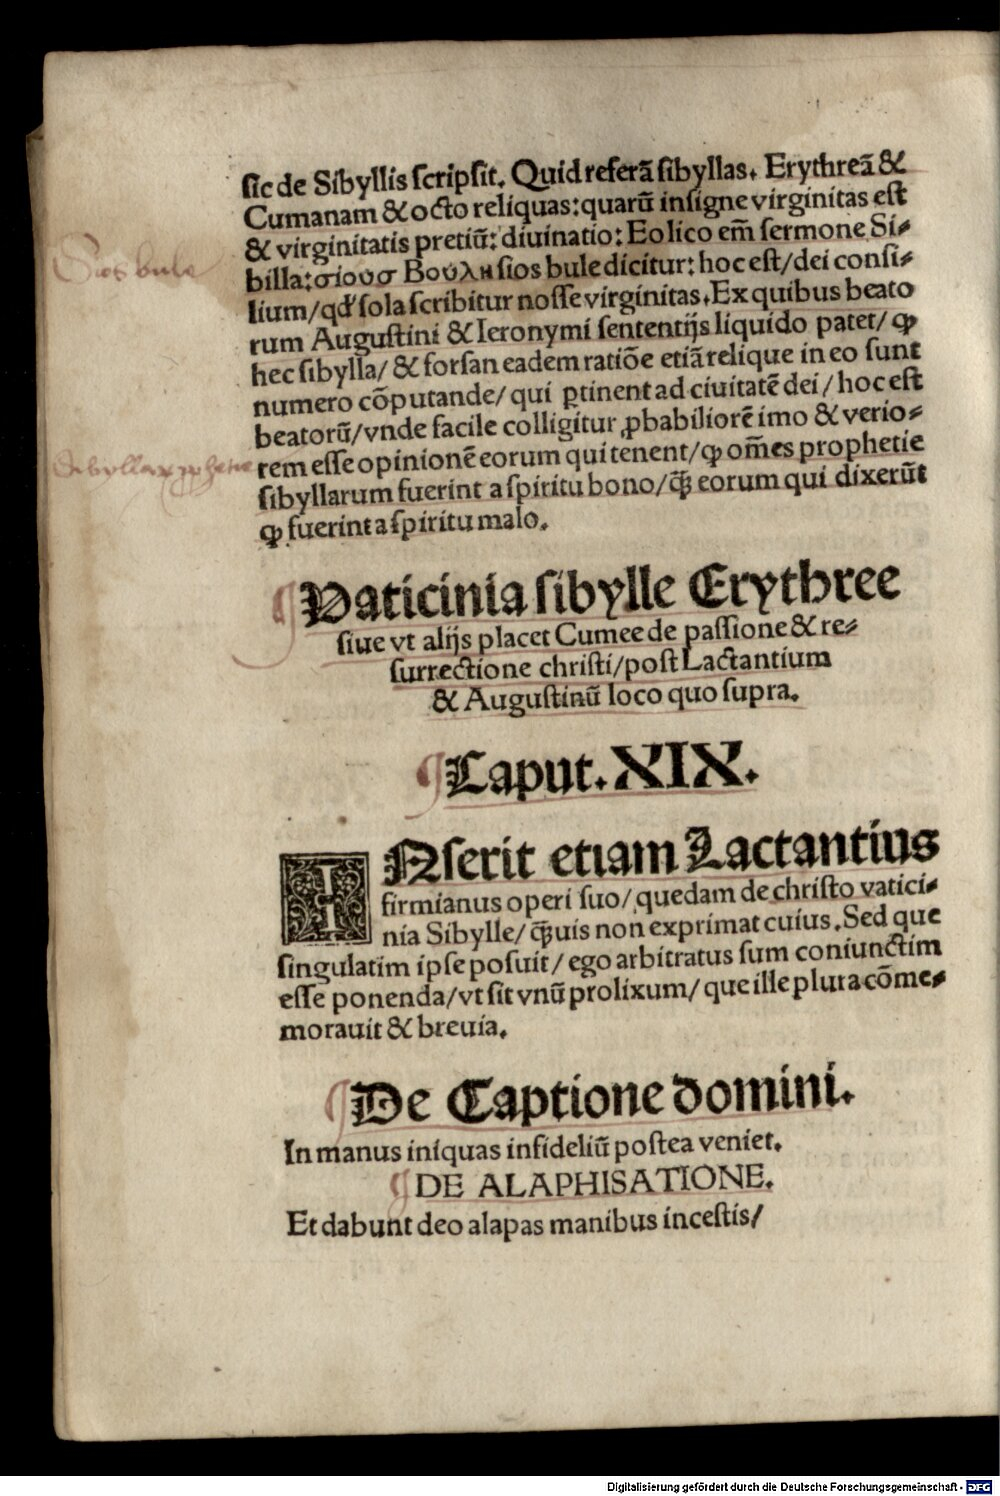 sic de Sibyllis scripsit. Quid referā sibyllas. Erythreā &
Cumanam & octo reliquas: quarū insigne virginitas est
& virginitatis pretiū: diuinatio: Eolico em̄ sermone Si-
billa: σιουσ Βούλη sios bule dicitur: hoc est/ dei consi-
lium/ qd' sola scribitur nosse virginitas. Ex quibus beato
rum Augustini & Ieronymi sententijs liquido patet/ ꝙ
hec sibylla/ & forsan eadem ratiōe etiā relique in eo sunt
numero cōputande/ qui ꝑtinent ad ciuitatē dei/ hoc est
beatorū/ vnde facile colligitur ꝓbabiliorē imo & verio-
rem esse opinionē eorum qui tenent/ ꝙ om̄es prophetie
sibyllarum fuerint a spiritu bono/ ꝙ̄ eorum qui dixerūt
ꝙ fuerint a spiritu malo.
Vaticinia sibylle Erythree
siue vt alijs placet Cumee de passione & re-
surrectione christi/ post Lactantium
& Augustinū loco quo supra.
Caput. XIX.
INserit etiam Lactantius
firmianus operi suo/ quedam de christo vatici-
nia Sibylle/ ꝙ̄uis non exprimat cuius. Sed que
singulatim ipse posuit/ ego arbitratus sum coniunctim
esse ponenda/ vt sit vnū prolixum/ que ille plura cōme-
morauit & breuia.
De Captione domini.
In manus iniquas infideliū postea veniet.
DE ALAPHISATIONE.
Et dabunt deo alapas manibus incestis/
Sios bule
Digitalisierung gefördert durch die Deutsche Forschungsgemeinschaft - DFG